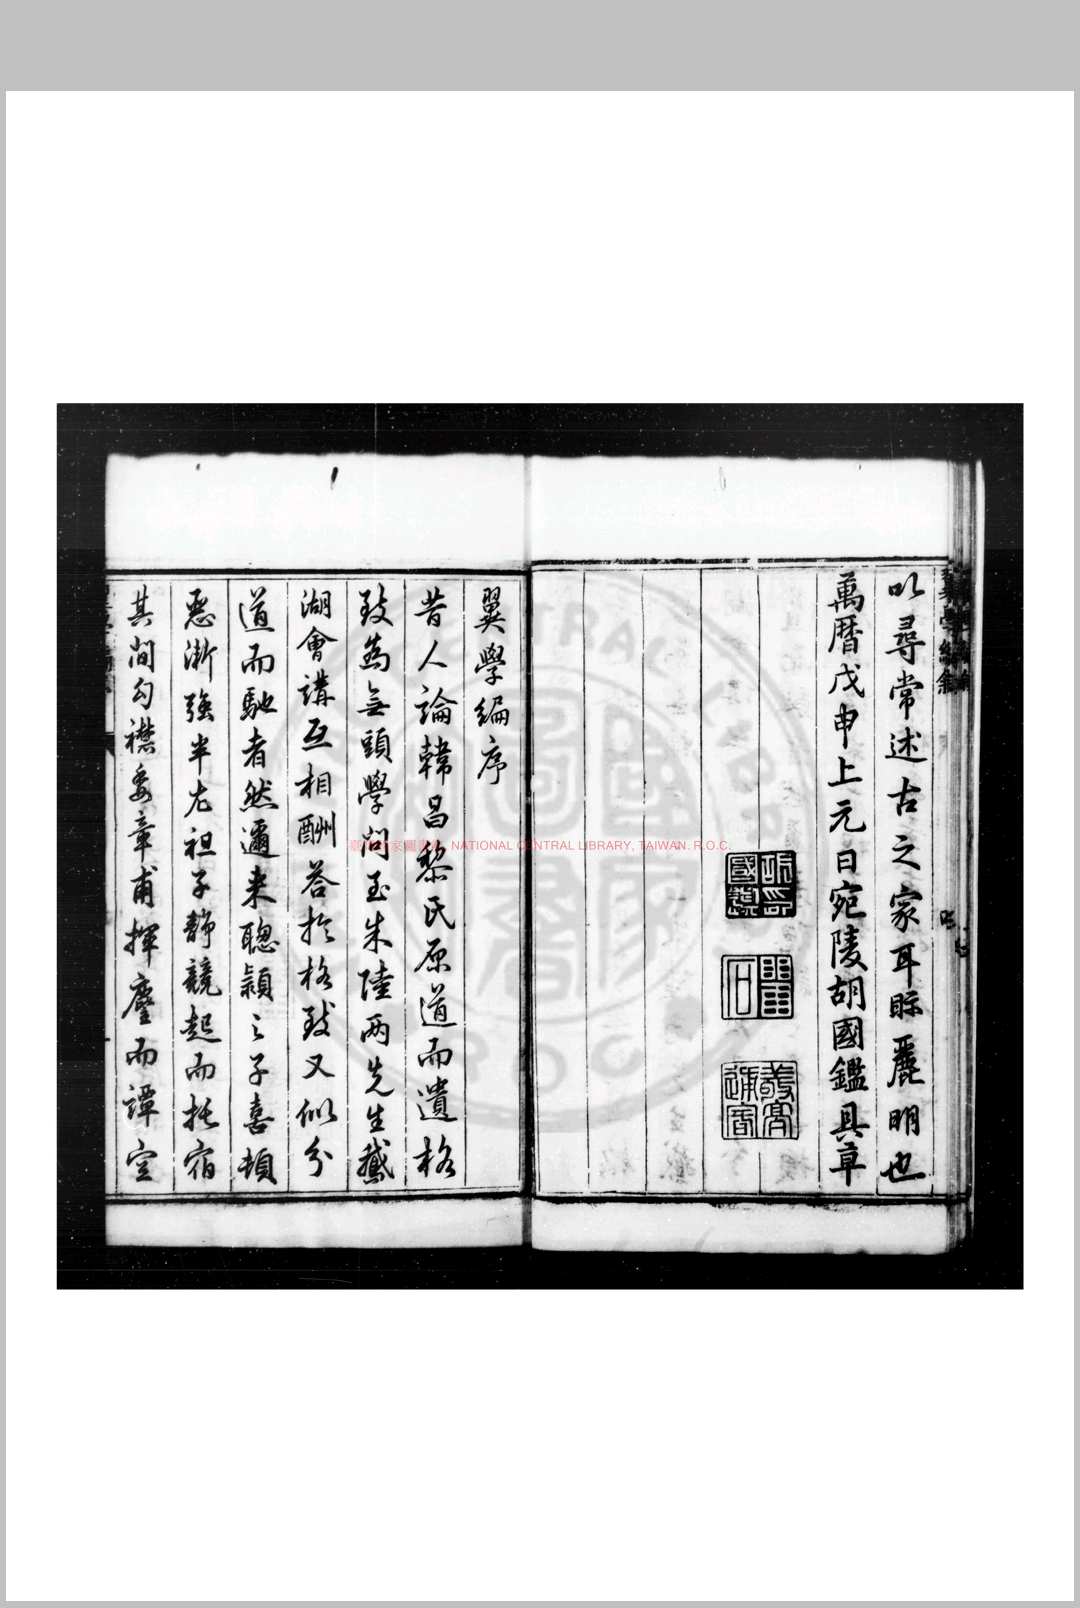 以尋常述古之家耳眎麗明也
萬曆戊申上元日宛陵胡國鑑具草
翼學編序
昔人論韓昌黎氏原道而遺格
致為無頭學問至朱陸兩先生鵝
湖會講互相酬荅於格致又似分
道而馳者然邇來聰穎之子喜頓
惡漸強半左袒子靜競起而托宿
其間勾襟委章甫揮麈而譚空
NATIONAL CENTRAL LIBRARY, TAIWAN. R.O.C.